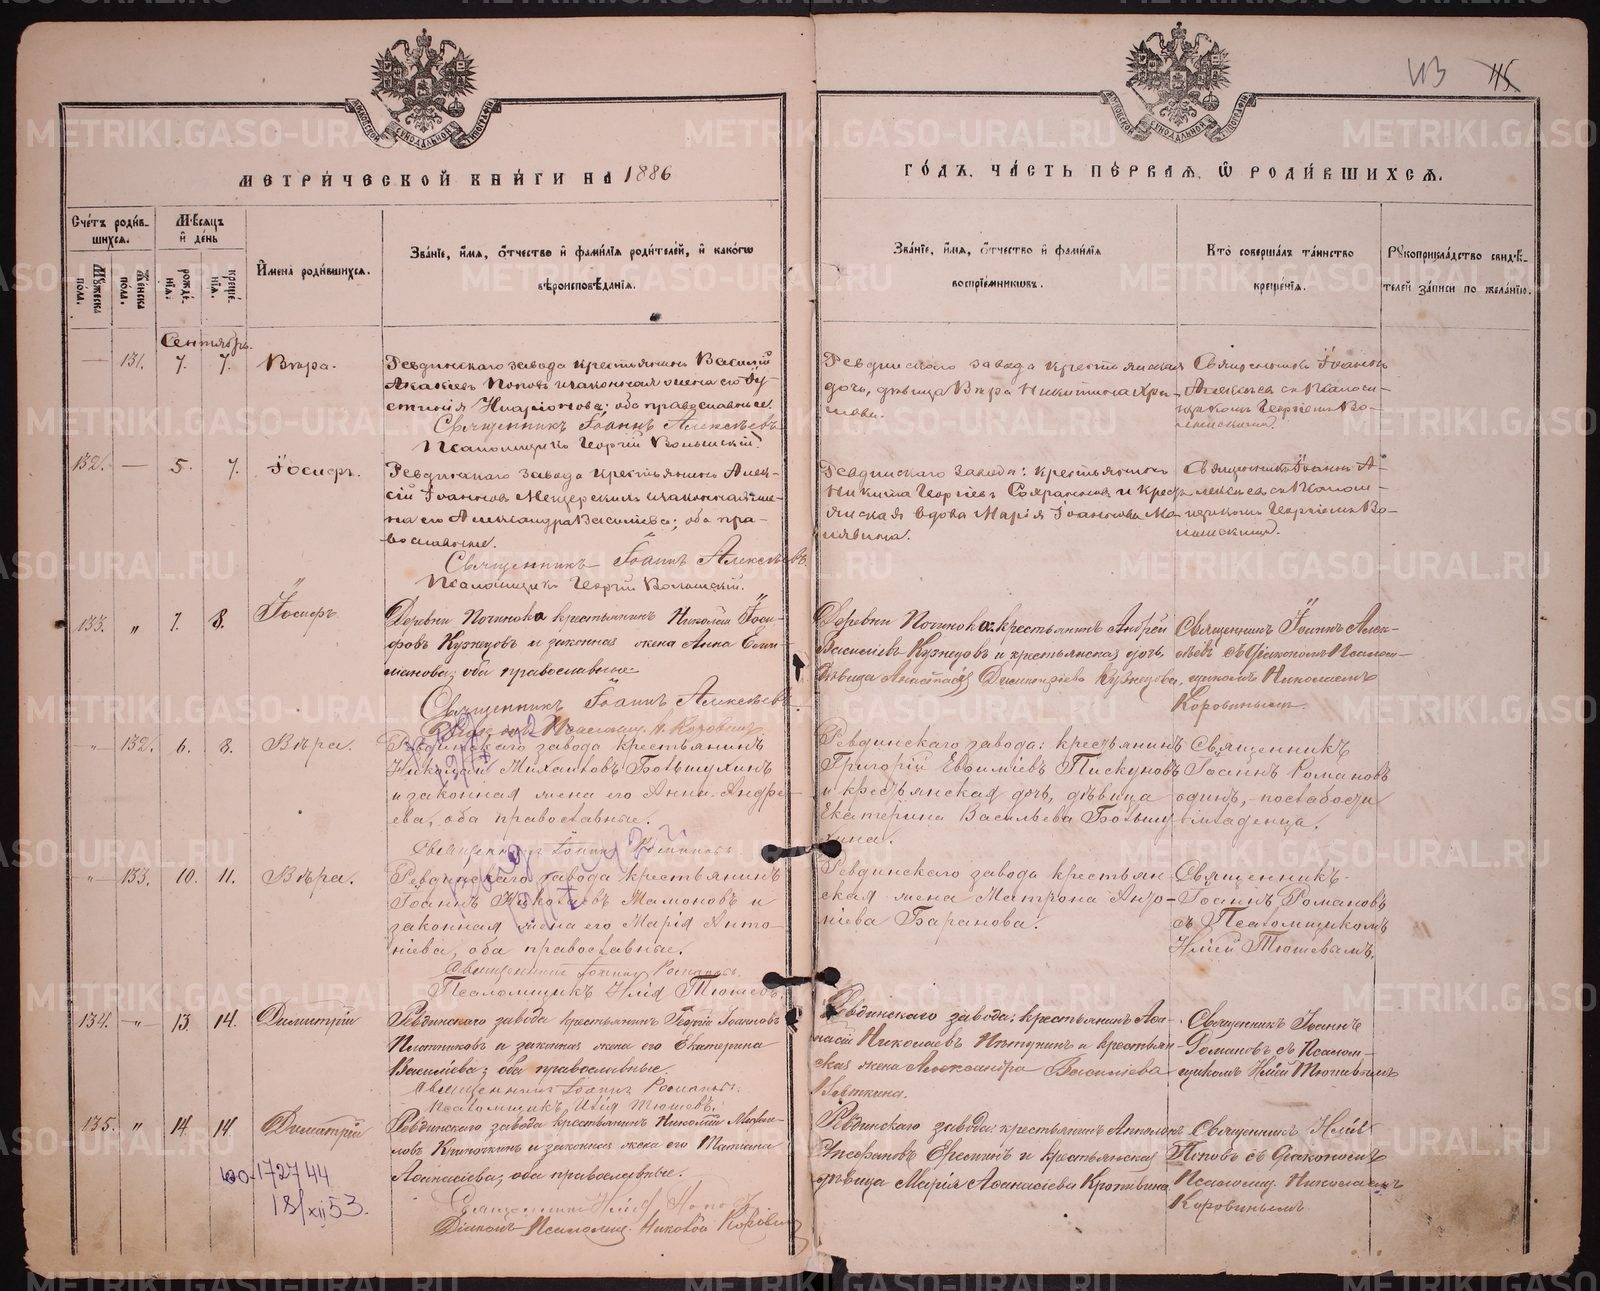 ИЗ 115
МЕТРИ́ЧЕСКОЙ КНИ́ГИ НА 1886
ГО́ДЪ, ЧА́СТЬ ПЕ́РВАЯ, Ѡ РОДИ́ВШИХСЯ.
Сче́тъ роди́в-
шихся.
Мꙋжеска по́ла.
Же́нска по́ла.
Мѣ́сяцъ
и҆ де́нь
рожде́-
нїя.
креще́-
нїя.
И҆мена̀ роди́вшихся.
Зва́нїе, и҆́мя, ѻ҆́тчество и҆ фами́лїя роди́телей, и҆ како́гѡ
вѣроисповѣ́данїя.
Зва́нїе, и҆́мя, ѻ҆́тчество и҆ фами́лїя
воспрїе́мникѡвъ.
Кто̀ соверша́лъ та́инство
креще́нїя.
Рꙋкоприкла́дство свидѣ́-
телей за́писи по жела́нїю.
Сентябрь.
— 131. 7. 7. Вѣра.
Ревдинскаго завода крестьянинъ Василій
Акакіевъ Поповъ и законная жена его Іу-
стинія Иларіонова; оба православные.
Священникъ Іоаннъ Алексѣевъ
Псаломщикъ Георгій
Ревдинскаго завода крестьянская
дочь, дѣвица Вѣра Никитина
Священникъ Іоаннъ
Алексѣевъ съ Псалом-
щикомъ Георгіемъ
132. — 5. 7. Іосифъ.
Ревдинскаго завода крестьянинъ Алек-
сій Іоанновъ и законная же-
на его Александра Васильева; оба пра-
вославные.
Священникъ Іоаннъ Алексѣевъ.
Псаломщикъ Георгій
Ревдинскаго завода: крестьянинъ
Никита Георгіевъ и крестъ-
янская вдова Марія Іоаннова
Священникъ Іоаннъ А-
лексѣевъ съ Псалом-
щикомъ Георгіемъ
133. „ 7. 8. Іосифъ
Деревни Починока крестьянинъ Николай Іоси-
фовъ Кузнецовъ и законная жена Анна
оба православные
Священникъ Іоаннъ Алексѣевъ
Псаломщ. Н. Коровинъ
Деревни Починока: крестьянинъ Андрей
Васильевъ Кузнецовъ и крестьянская дочь
дѣвица Анастасія Кузнецова
Священникъ Іоаннъ Алек-
сѣевъ съ Діакономъ Псалом-
щикомъ Николаемъ
Коровинымъ
-„- 132. 6. 8. Вѣра.
Ревдинскаго завода крестьянинъ
Николай Михаиловъ Большухинъ
и законная жена его Анна Андре-
ева, оба православные.
Священникъ Іоаннъ Романовъ
Ревдинскаго завода: крестьянинъ
Григорій Евѳиміевъ Пискуновъ
и крестьянская дочь, дѣвица
Екатерина Васильева Большу-
хина.
Священникъ
Іоаннъ Романовъ
одинъ, по слабости
младенца.
-„- 133. 10. 11. Вѣра.
Ревдинскаго завода крестьянинъ
Іоаннъ Николаевъ Мамоновъ и
законная жена его Марія Анто-
ніева, оба православные.
Священникъ Іоаннъ Романовъ.
Псаломщикъ Илія Тюшевъ.
Ревдинскаго завода крестьян-
ская жена Матрона Анто-
ніева Баранова.
Священникъ
Іоаннъ Романовъ
съ Псаломщикомъ
Иліей Тюшевымъ.
134. -„- 13. 14. Димитрій
Ревдинскаго завода крестьянинъ Георгій Іоанновъ
Плотниковъ и законная жена его Екатерина
Васильева; оба православные.
Священникъ Іоаннъ Романовъ.
Псаломщикъ Илія Тюшевъ.
Ревдинскаго завода: крестьянинъ Аѳа-
насій Николаевъ и крестьян-
ская жена Александра Васильева
Священникъ Іоаннъ
Романовъ съ Псалом-
щикомъ Иліей Тюшевымъ
135. „ 14. 14. Димитрій
Ревдинскаго завода крестьянинъ Николай
и законная жена его Татіана
Аѳанасіева; оба православные.
Священникъ Илія Поповъ
Діаконъ Псаломщ. Николай Коровинъ
Ревдинскаго завода: крестьянинъ
и крестьянская
дѣвица Марія Аѳанасіева
Священникъ Илія
Поповъ съ Діакономъ
Псаломщ. Николаемъ
Коровинымъ
172744
18/XII 53.
METRIKI.GASO-URAL.RU